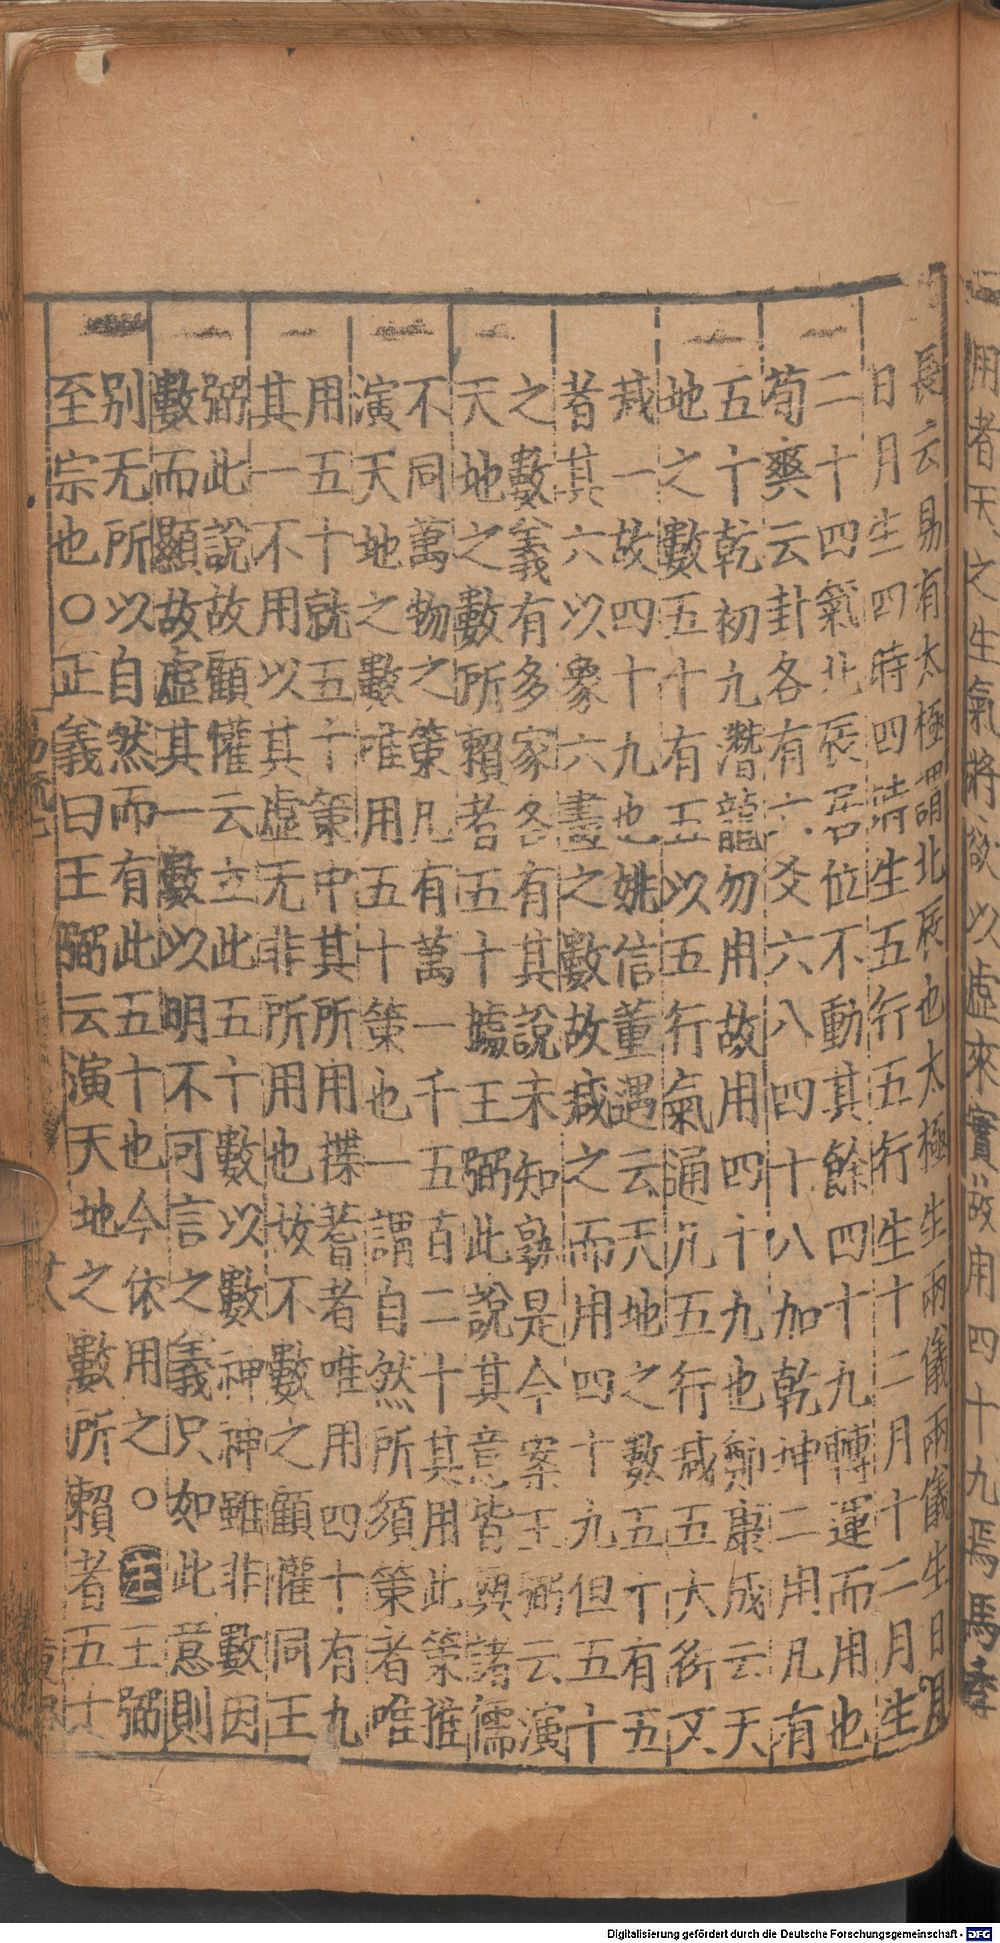 用者天之生氣將欲以虛來實故用四十九焉馬季
長云易有太極謂北辰也太極生兩儀兩儀生日月
日月生四時四時生五行五行生十二月十二月生
二十四氣北辰居位不動其餘四十九轉運而用也
荀爽云卦各有六爻六八四十八加乾坤二用凡有
五十乾初九潛龍勿用故用四十九也鄭康成云天
地之數五十有五以五行氣通凡五行减五大衍又
减一故四十九也姚信董遇云天地之數五十有五
者其六以象六畫之數故减之而用四十九但五十
之數義有多家各有其說未知孰是今案王弼云演
天地之數所賴者五十據王弼此說其意皆與諸儒
不同萬物之策凡有萬一千五百二十其用此策推
演天地之數唯用五十策也一謂自然所須策者唯
用五十就五十策中其所用揲蓍者唯用四十有九
其一不用以其虛无非所用也故不數之顧懽同王
弼此說故顧懽云立此五十數以數神神雖非數因
數而顯故虛其一數以明不可言之義只如此意則
别无所以自然而有此五十也今依用之○王王弼
至宗也○正義曰王弼云演天地之數所賴者五十
Digitalisierung gefördert durch die Deutsche Forschungsgemeinschaft - DFG